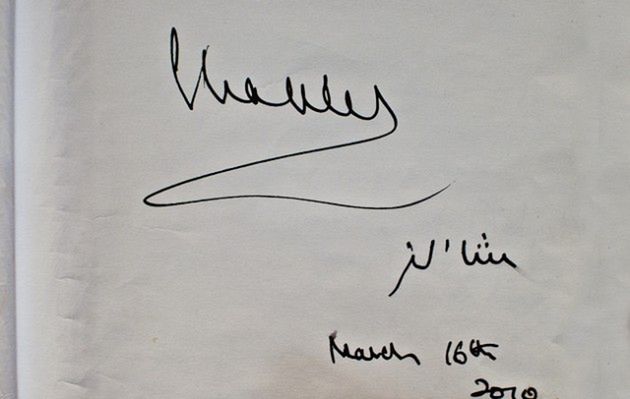 Charles
March 16th
2010